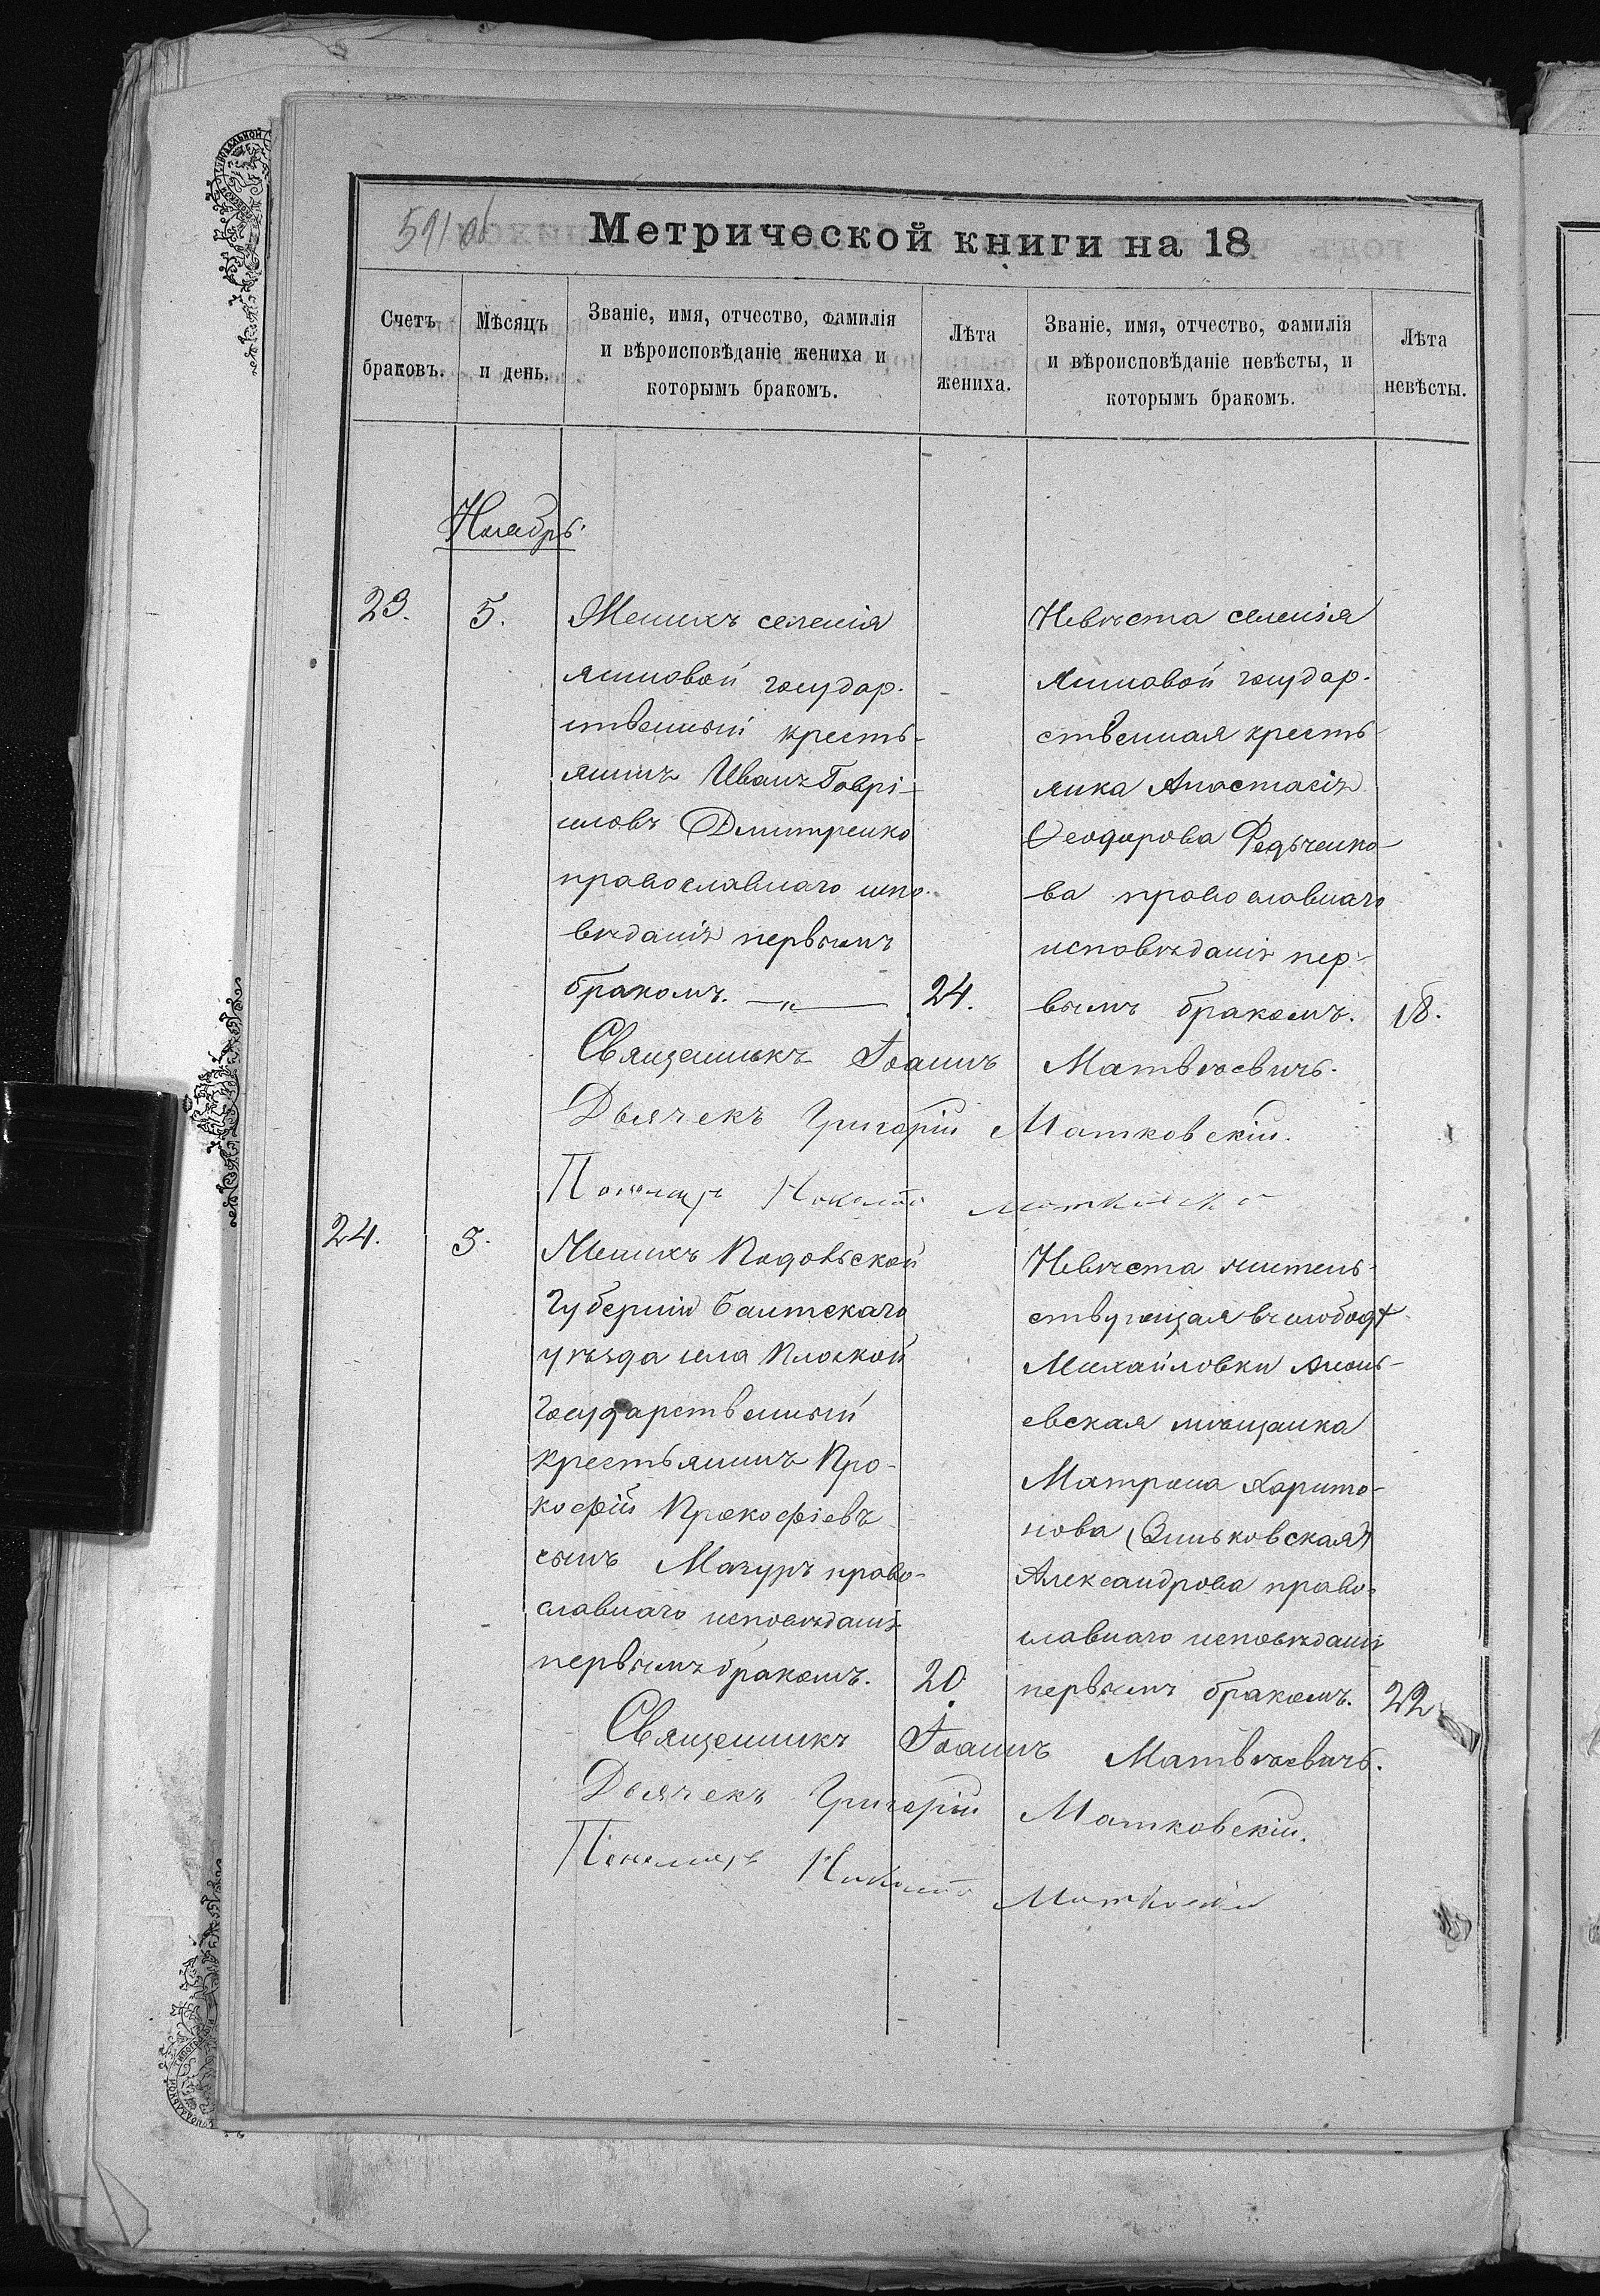 591 об
Метрической книги на 18
Счетъ браковъ.
Мѣсяцъ и день.
Званіе, имя, отчество, фамилія
и вѣроисповѣданіе жениха и
которымъ бракомъ.
Лѣта жениха.
Званіе, имя, отчество, фамилія
и вѣроисповѣданіе невѣсты, и
которымъ бракомъ.
Лѣта невѣсты.
Ноябрь.
23.
5.
Женихъ селенія
Ясиновой государ-
ственный кресть-
янинъ Иванъ Гаврі-
иловъ Дмитренко
православнаго испо-
вѣданія первымъ
бракомъ. — „ —
24.
Невѣста селенія
Ясиновой государ-
ственная кресть-
янка Анастасія
Ѳеодорова Федьченко-
ва православнаго
исповѣданія пер-
вымъ бракомъ.
18.
Священникъ Іоаннъ Матвѣевичъ.
Дьячекъ Григорій Матковскій.
Пономарь
24.
5.
Женихъ Подольской
Губерніи Балтскаго
уѣзда села Плоской
Государственный
крестьянинъ Про-
кофій Прокофіевъ
сынъ Мазуръ право-
славнаго исповѣданія
первымъ бракомъ.
20
Невѣста житель-
ствующая въ слободѣ
Михайловки Анань-
евская мѣщанка
Матрона Харито-
нова (Зиньковская)
Александрова право-
славнаго исповѣданія
первымъ бракомъ.
22
Священникъ Іоаннъ Матвѣевичъ.
Дьячекъ Григорій Матковскій.
Пономарь